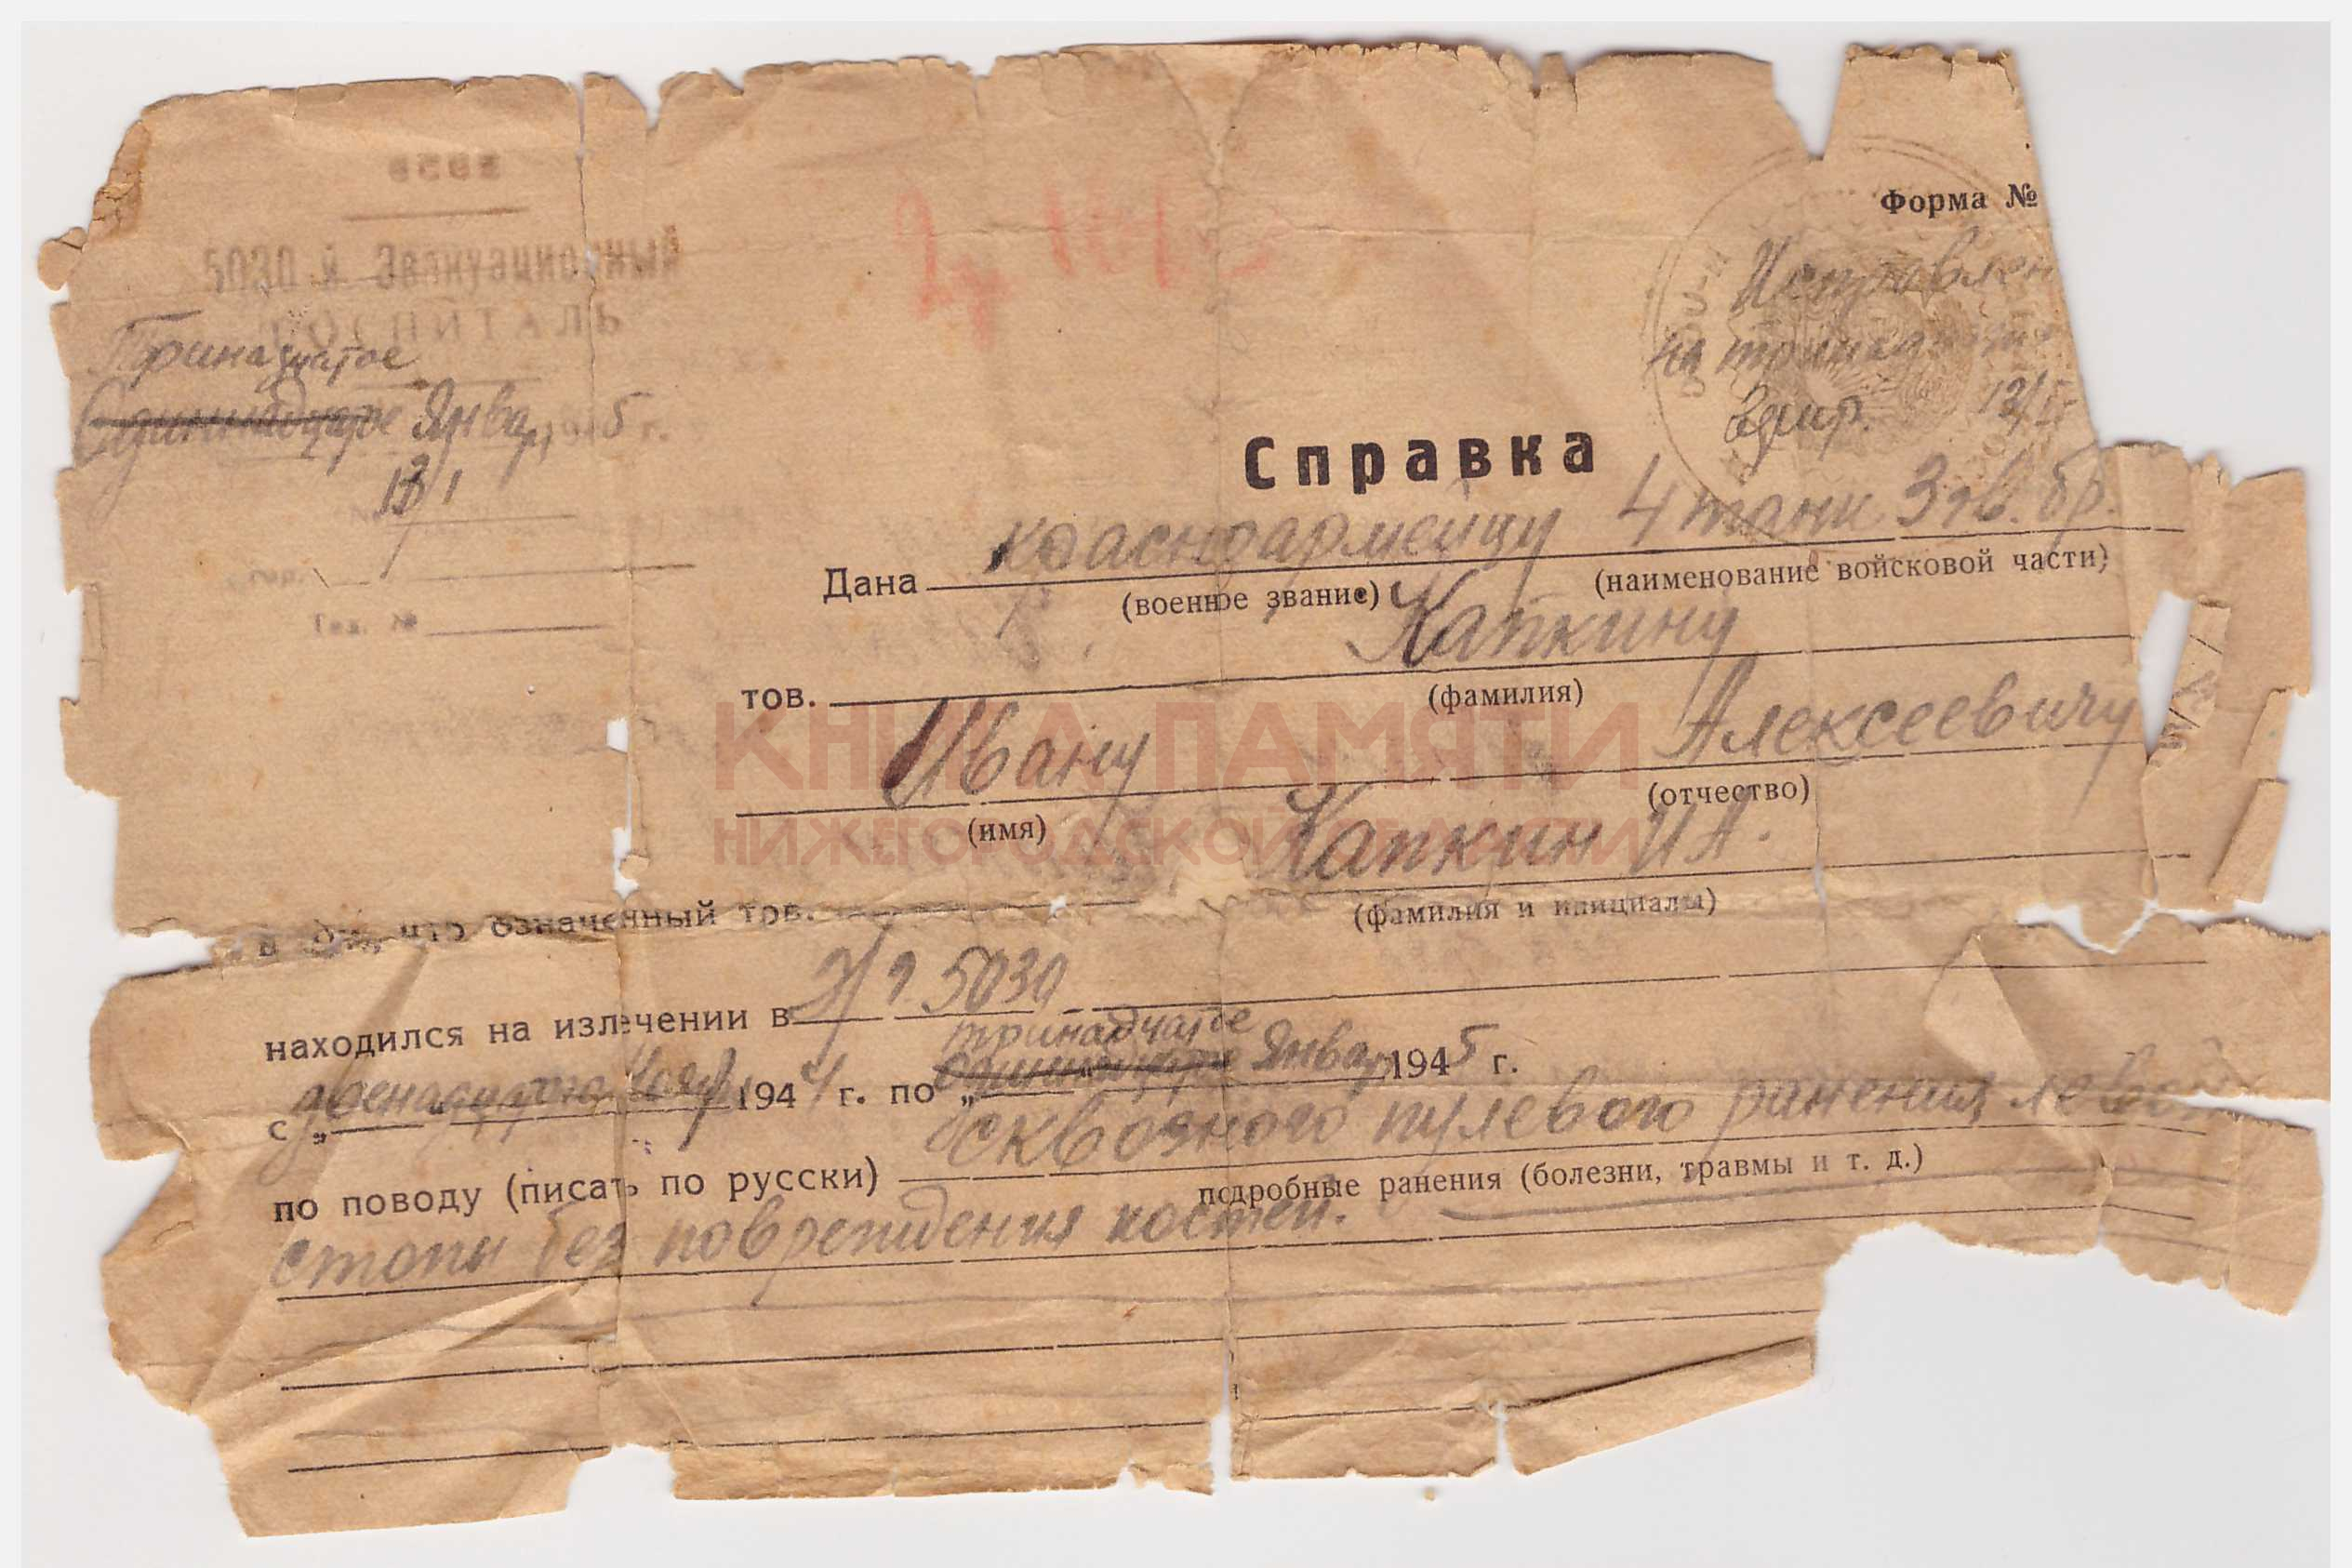 Форма №
5030 й Эвакуационный
ГОСПИТАЛЬ
Исправлен
на тринадцат
13/I
Тринадцатое
Одиннадцатое Январ 1945 г.
13/I
№
гор.
Тел. №
Справка
Дана красноармейцу 4 танк. Згв. бр.
(военное звание) (наименование войсковой части)
тов. Капкину
(фамилия)
Ивану Алексеевичу
(имя) (отчество)
КНИГА ПАМЯТИ
НИЖЕГОРОДСКОЙ ОБЛАСТИ
в том, что означенный тов. Капкин И А.
(фамилия и инициалы)
находился на излечении в Э/Г 5030
тринадцатое
с „двенадцатого Нояб 1944 г. по „Одиннадцатое Январ 1945 г.
по поводу (писать по русски) сквозного пулевого ранения левой
подробные ранения (болезни, травмы и т. д.)
стопы без повреждения костей.